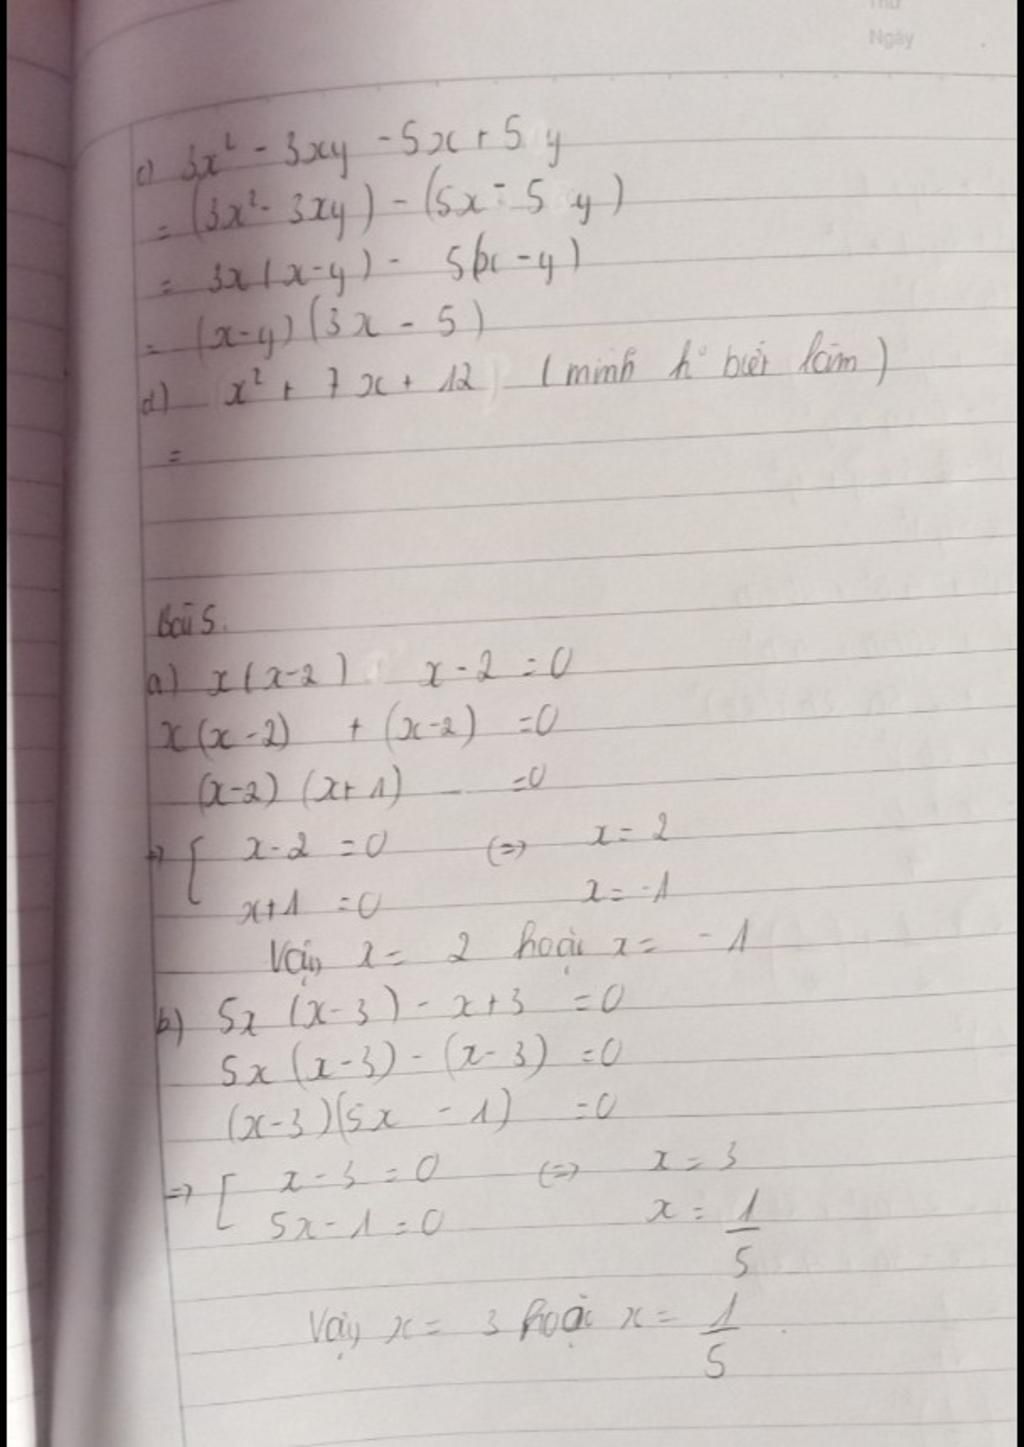 Thứ
Ngày
c) 3x² - 3xy - 5x + 5y
= (3x² - 3xy) - (5x - 5y)
= 3x(x-y) - 5(x-y)
= (x-y)(3x - 5)
d) x² + 7x + 12 (mình k° biết làm)
=
Bài 5.
a) x(x-2) x - 2 = 0
x(x-2) + (x-2) = 0
(x-2)(x+1) = 0
=> [ x - 2 = 0 (=> x = 2
x+1 = 0 x = -1
Vậy x = 2 hoặc x = -1
b) 5x(x-3) - x+3 = 0
5x(x-3) - (x-3) = 0
(x-3)(5x - 1) = 0
=> [ x - 3 = 0 (=> x = 3
5x - 1 = 0 x = 1/5
Vậy x = 3 hoặc x = 1/5